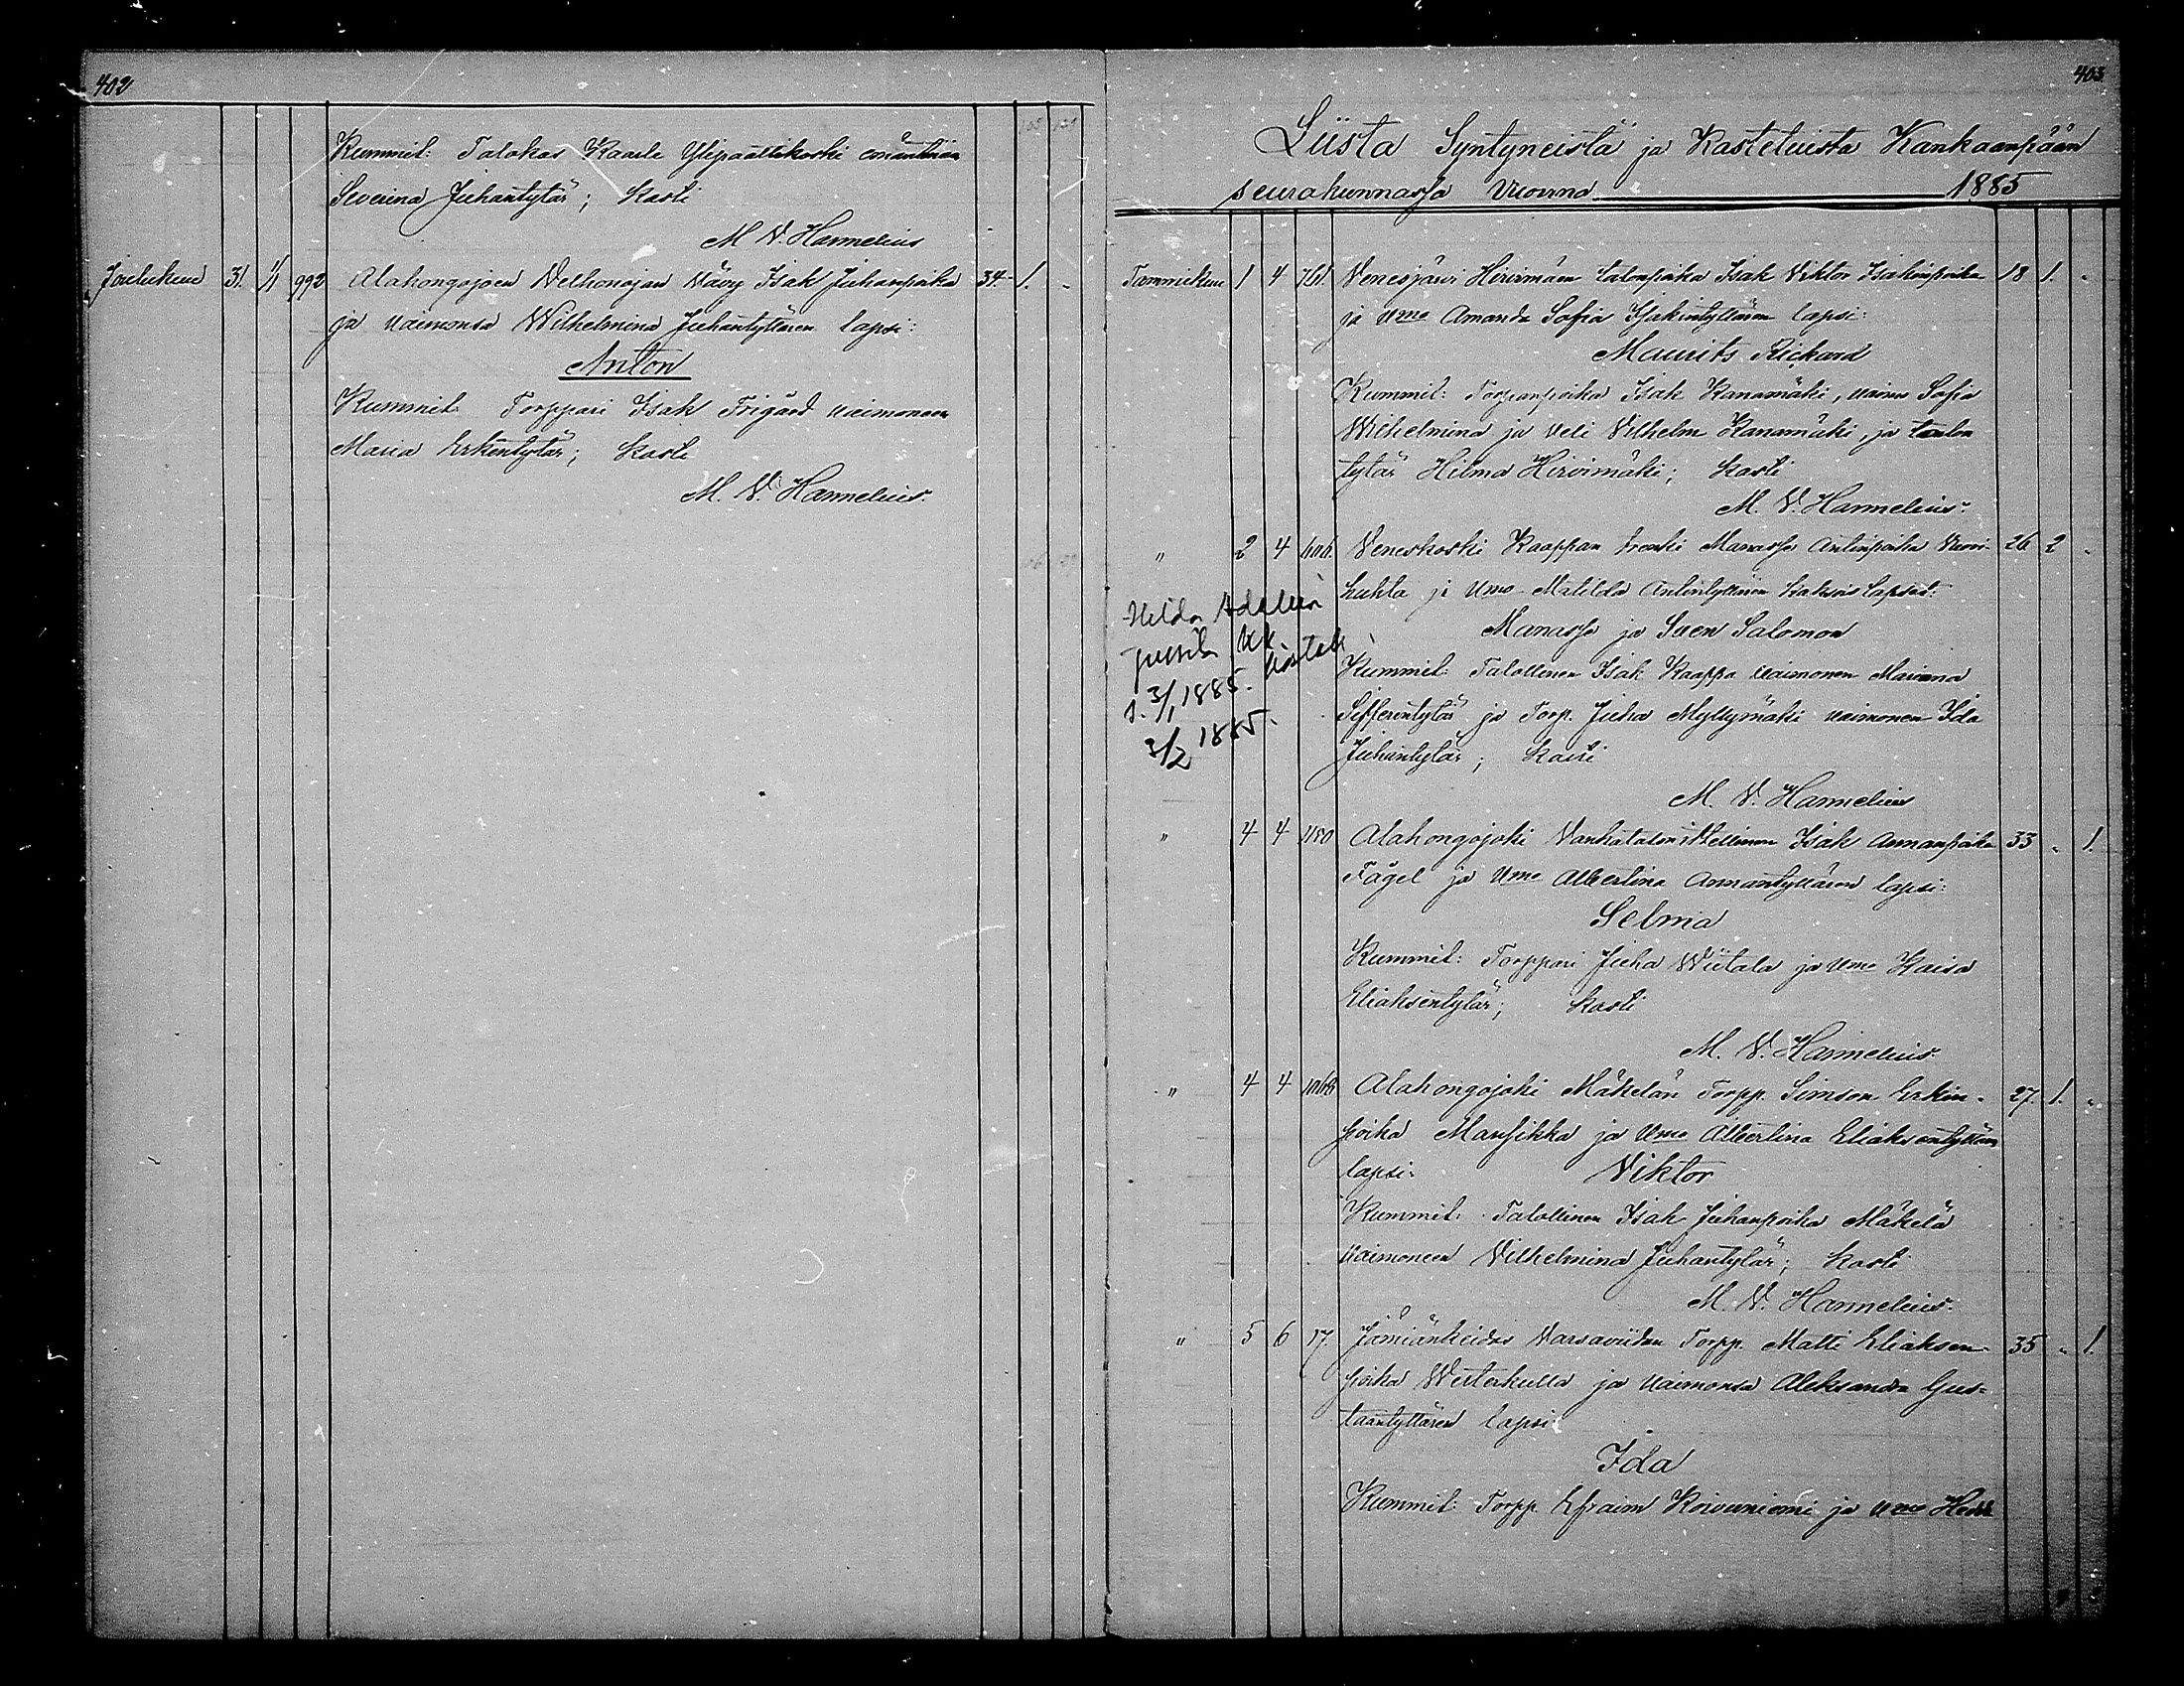 402
Kummit: Talokas Kaarle Ylipaattikoski emäntänsä
Severina Juhantytär; kasti
M V. Hannelius
Joulukuu 31. 1/1 992 Alahongojoen Welhonojan Vävy Isak Juhanpoika 34 1. "
ja vaimonsa Wilhelmina Juhantyttären lapsi:
Anton
Kummit Torppari Isak Frigård vaimoneen
Maria Erkintytär; kasti
M. V. Hannelius.
403
Liista Syntyneistä ja Kastetuista Kankaanpään
seurakunnassa Vuonna 1885
Tammikuu 1 4 Venesjärvi Hirvimäen talonpoika Isak Viktor Isakinpoika 18 1. "
ja Vmo Amanda Sofia Isakintyttären lapsi:
Maurits Rickard
Kummit: Torpanpoika Isak Kanamäki, vaimo Sofia
Wilhelmina ja veli Vilhelm Kanamäki, ja talon
tytär Hilma Hirvimäki; kasti
M. V. Hannelius.
" 2 4 Veneskoski Kaappan Manasse Antinpoika Vuori- 26 2 "
huhta ja Vmo Matilda Antintyttären kaksoislapset:
Manasse ja Sven Salomon
Hilda Adaleria
s. 3/1 1885. kastet.
3/2 1885.
Kummit: Talollinen Isak Kaappa vaimoneen Mariana
Sefferintytär ja Torp. Juha Myllymäki vaimoneen Ida
Juhantytär; kasti
M. V. Hannelius
" 4 4 1180 Alahongojoki Vanhatalon itsellinen Isak Annanpoika 33 " 1.
Fågel ja Vmo Albertina Annantyttären lapsi:
Selma
Kummit: Torppari Juha Wiitala ja Vmo Kaisa
Eliaksentytär; kasti
M. V. Hannelius.
" 4 4 Alahongojoki Mäkelän Torpp. Simson Erkin- 27. 1. "
poika Mansikka ja Vmo Albertina Eliaksentyttären
lapsi: Viktor
Kummit: Talollinen Isak Juhanpoika Mäkelä
vaimoneen Vilhelmina Juhantytär; kasti
M. V. Hannelius.
" 5 6 17. Jämiänkeidas Varsaviidan Torpp. Matti Eliaksen- 35 " 1.
poika Westerkulla ja vaimonsa Aleksandra Gus-
taantyttären lapsi
Ida
Kummit: Torpp. Efraim Koivuniemi ja Vmo Hedd